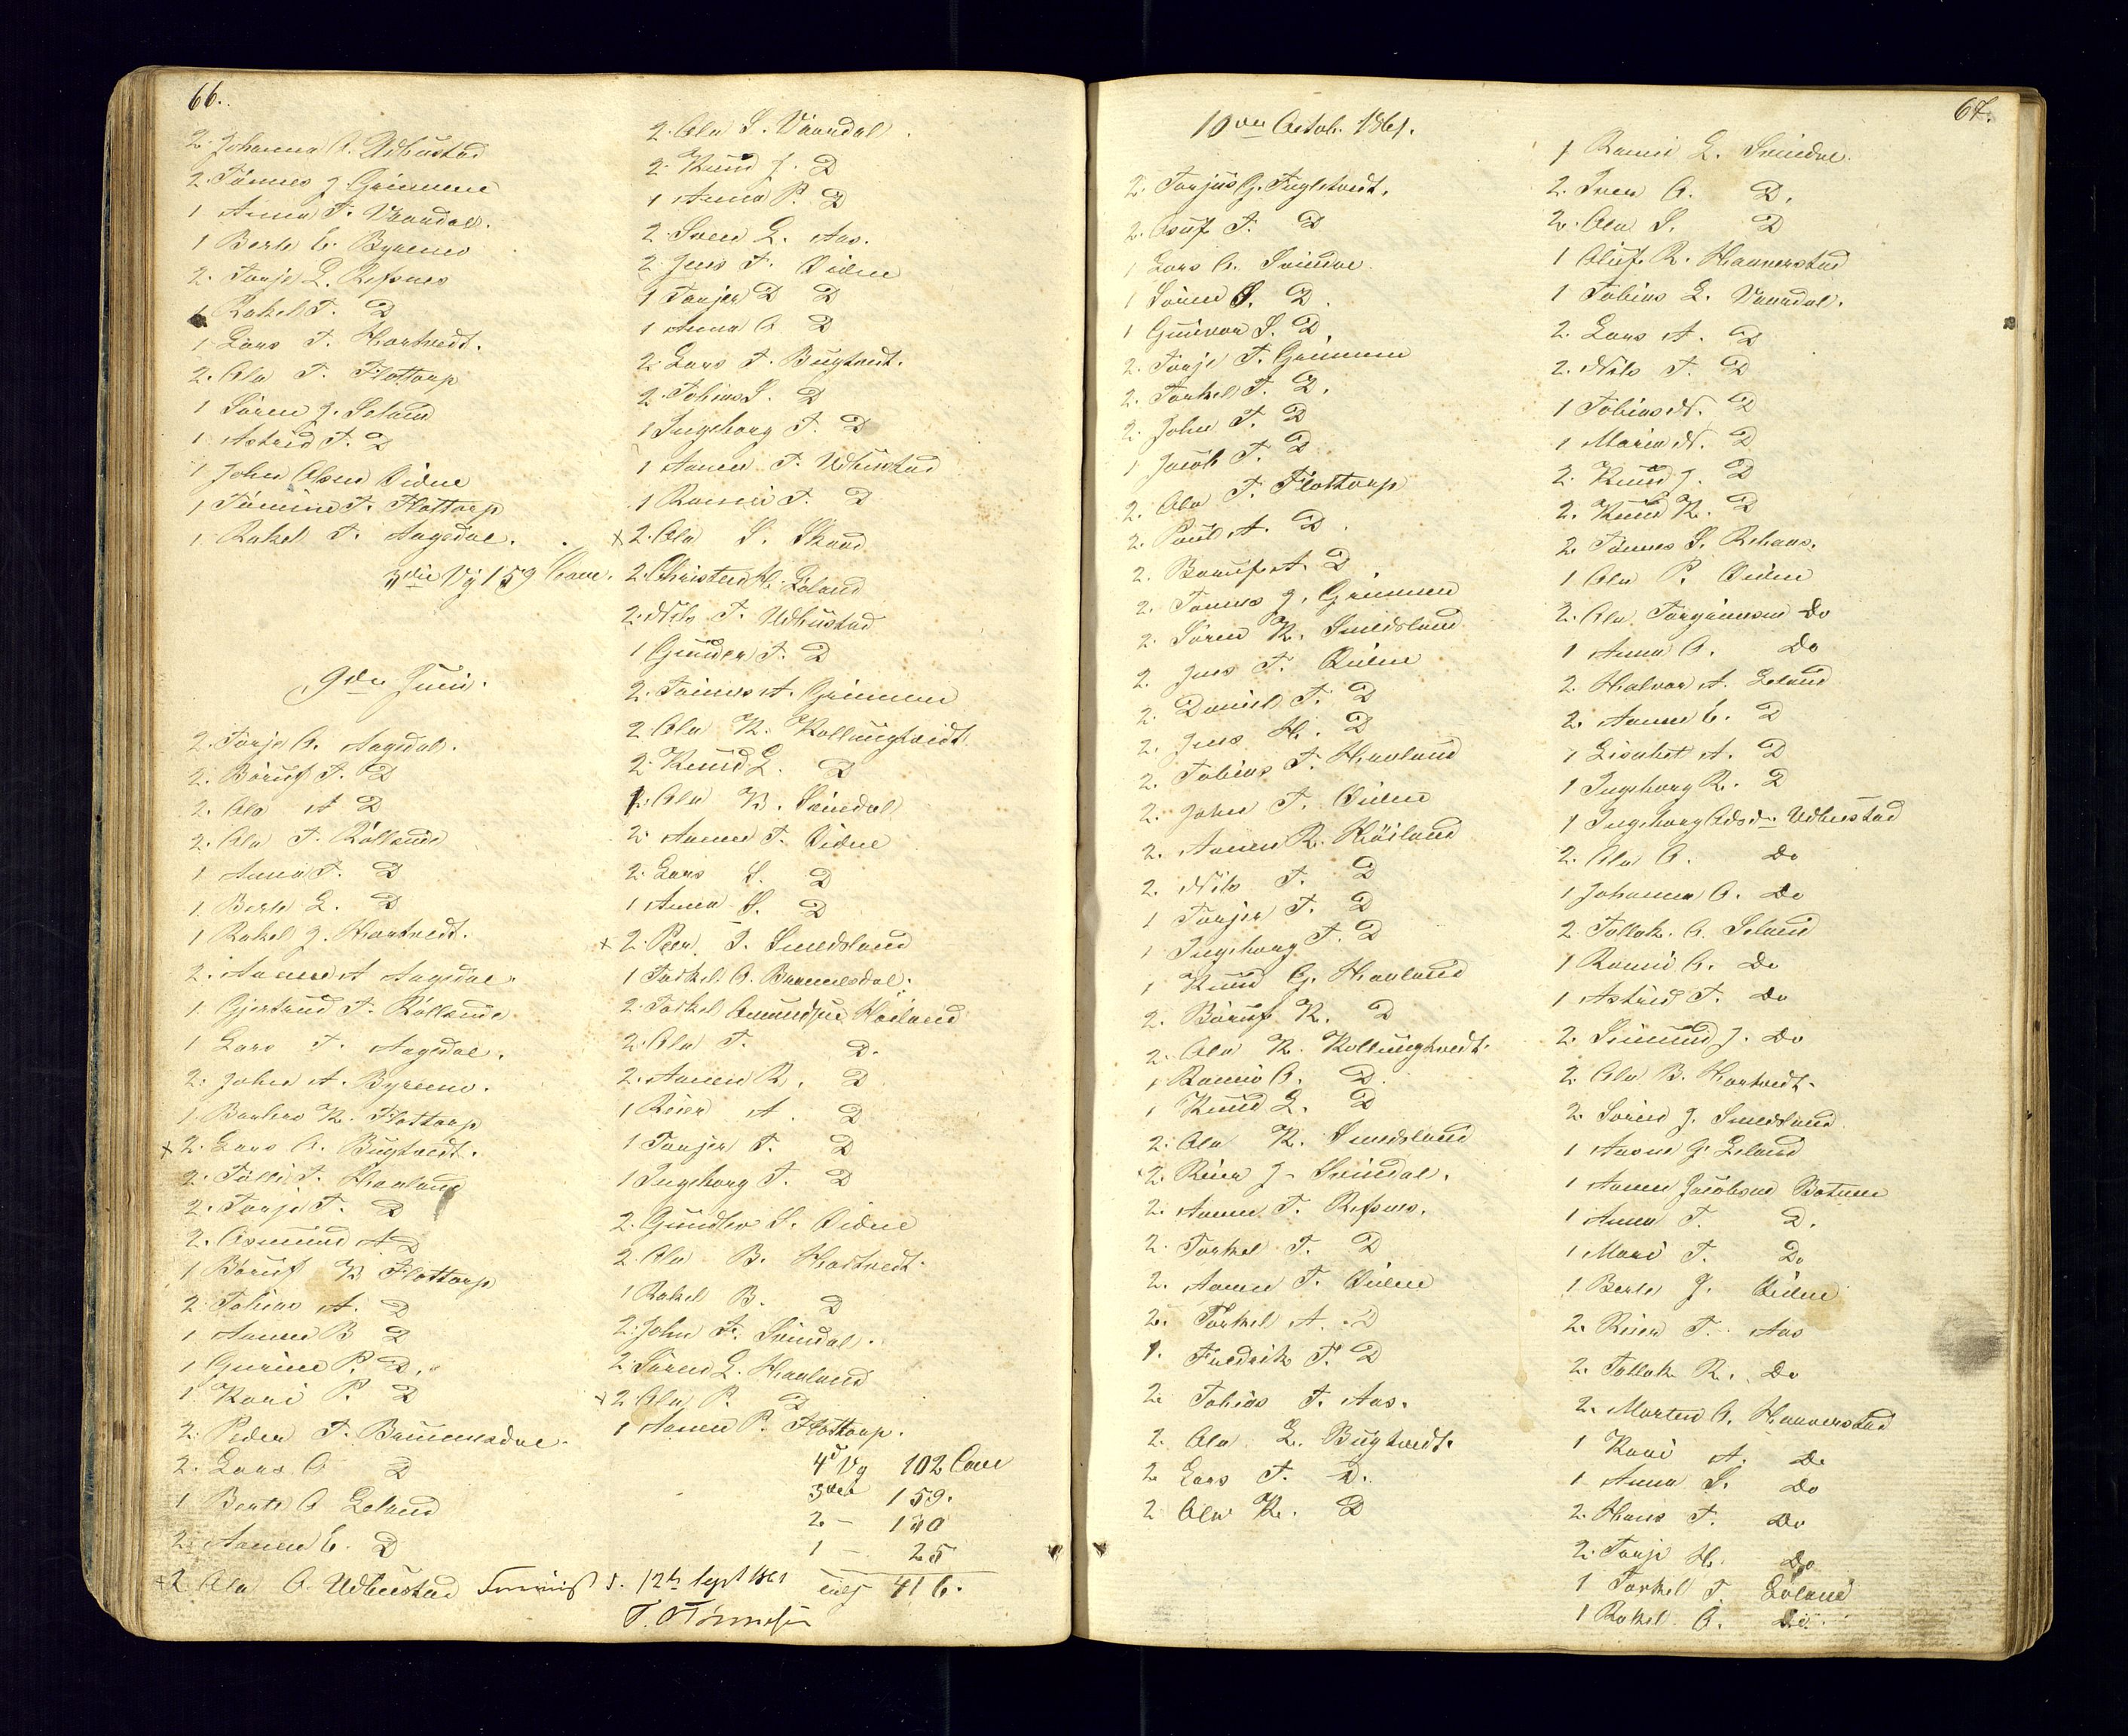 66.
2. Johanna O. Udbustad
2. Tönnes J Grimme
1 Anna T. Vaardal.
1 Berte E. Byremo
2. Tarje L. Refsnes
1 Rakel T. D
1 Lars T. Hortvedt.
2. Ola T. Flottorp
1 Sören J. Seland
1 Astrid T. D
1 John Olsen Öidne
1 Tömine T. Flottorp
1 Rakel T. Aagedal.
3die Vg 159 Laane.
9de Juni.
2. Tarje O. Aagedal.
2. Böruf T. D
2. Ola A D
2. Ola T. Röllande
1 Anna T. D
1. Berte L. D
1 Rakel J. Hortvedt.
2. Aanen A Aagedal.
1. Gjertrud T. Röllande
1 Lars T. Aagedal.
2. John A. Byremo.
1. Barbro K. Flottorp
x 2. Lars O. Bugtvedt.
2. Tölli T. Haaland
2. Tarje T. D
2. Asmund A D
1 Böruf K Flottorp
2. Tobias A. D
1 Aanen B D
1 Gurine P. D.
1 Kari P. D
2. Peder T. Brummesdal
2. Lars O D
1 Berte O Leland
2. Aanen E. D
x 2 Ola O. Udbustad
2. Ola S. Vaardal.
2. Knud J. D
1 Anna P. D
2. Sven L. Aas.
2. Jens T. Öidne
1 Tarjer D D
1 Anna O D
2. Lars T. Bugtvedt.
2. Tobias S. D
1 Ingeborg T. D
1 Aanen T. Udbustad
1 Rannei T. D
x 2. Ola S. Skaar
2. Christen H. Löland
2. Nils T. Udbustad
1 Gunder T. D
2. Tönnes A. Grimme
2. Ola K. Kollungtvedt
2. Knud L. D
1. Ola K. Svindal
2. Aanen T. Öidne
2. Lars S. D
1 Anna S. D
x 2. Peer J. Smedsland
1 Torkel O. Brummesdal.
2. Torkel Amundsen Höiland
2. Ola T. D.
2. Aanen R. D
1 Reier A. D
1 Tarjer T. D
1 Ingeborg T. D
2. Gundleo S. Öidne
2. Ola B. Hortvedt.
1 Rakel B. D
2. John F. Svindal.
2. Sören L. Haaland
x 2. Ola P. D
1 Aanen P. Flottorp.
4d Vg 102 Laan
3die 159.
2 - 130
1 - 25
416.
12te Sept 1861
T. O Tönnesen
67.
10de Octob. 1861.
2. Tarjus G. Fuglestvedt.
2. Asuf T. D
1 Lars O. Svindal
1 Sören S. D.
1 Gunvor S. D.
2. Tarje T. Grimme
2. Torkel T. D.
2. John T. D
1 Jacob T. D
2. Ola T. Flottorp
2. Poul A. D.
2. Boruf A. D
2. Tönnes J. Grimme
2. Sören K. Smedsland
2. Jens T. Öidne
2. Daniel T. D
2. Jens H. D
2. Tobias T. Haaland
2. John T. Öidne
2. Aanen R. Höiland
2. Nils T. D
1 Tarjer T. D
1 Ingeborg T. D
1 Knud G. Haaland
2. Böruf K. D
2. Ola K. Kollungtvedt.
1 Rannei O. D.
1 Knud L. D
2. Ola K. Smedsland
2. Reier J. Svindal.
2. Aanen T. Refsnes.
2. Torkel T. D
2. Aanen T. Öidne
2. Torkel A. D
1. Fredrik T. D
2. Tobias T. Aas.
2. Ola L. Bugtvedt.
2 Lars T. D.
2 Ola K. D
1 Rannei L. Svindal.
2. Iver O. D.
2. Ola S. D
1 Oluf R. Haaverstad
1 Tobias L. Vaardal.
2. Lars A. D
2. Nils T. D
1 Tobias N. D
1 Maria N. D
2. Knud J. D
2. Knud K. D
2. Tönnes S. Rehaas.
1 Ola P. Öidne
2. Ola Torgrimsen Do
1 Anna O. Do
2. Halvor A. Leland
2. Aanen E. D
1 Lisabet A. D
1 Ingeborg R. D
1 Ingeborg Adsdr Udbustad
2. Ola O. Do
1 Johanna O. Do
2. Tollak O. Seland
1 Rannei O. Do
1 Astrid T. Do
2. Simund J. Do
2. Ola B. Hortvedt.
2. Sören J. Smedsland
1 Aasne G. Leland
1 Aanen Jacobsen Botnen
1 Anna T. D.
1 Mari T. Do
1 Berte J. Öidne
2. Reier T. Aas
2. Tollak R. Do
2. Morten O. Haaverstad
1 Kari A. Do
1 Anna S. Do
2. Hans T. Do
2. Tarje H. Do
1 Torkel T. Löland
1 Rakel O. Do.